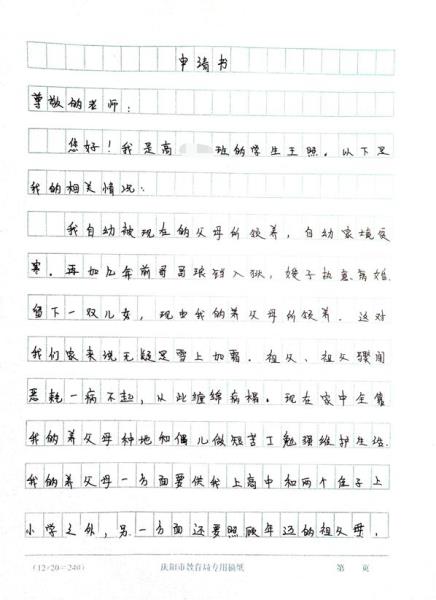 申请书
尊敬的老师：
您好！我是高 班的学生王照。以下是
我的相关情况：
我自幼被现在的父母所领养，自幼家境贫
寒。再加几年前哥哥琅铛入狱，嫂子执意离婚
留下一双儿女，现由我的养父母所领养．这对
我们家来说无疑是雪上加霜．祖父、祖父骤闻
恶耗一病不起，从此缠绵病榻．现在家中全靠
我的养父母种地和偶儿做短苦工勉强维护生活．
我的养父母一方面要供我上高中和两个侄子上
小学之外，另一方面还要照顾年迈的祖父母，
(12×20=240) 庆阳市教育局专用稿纸 第 页